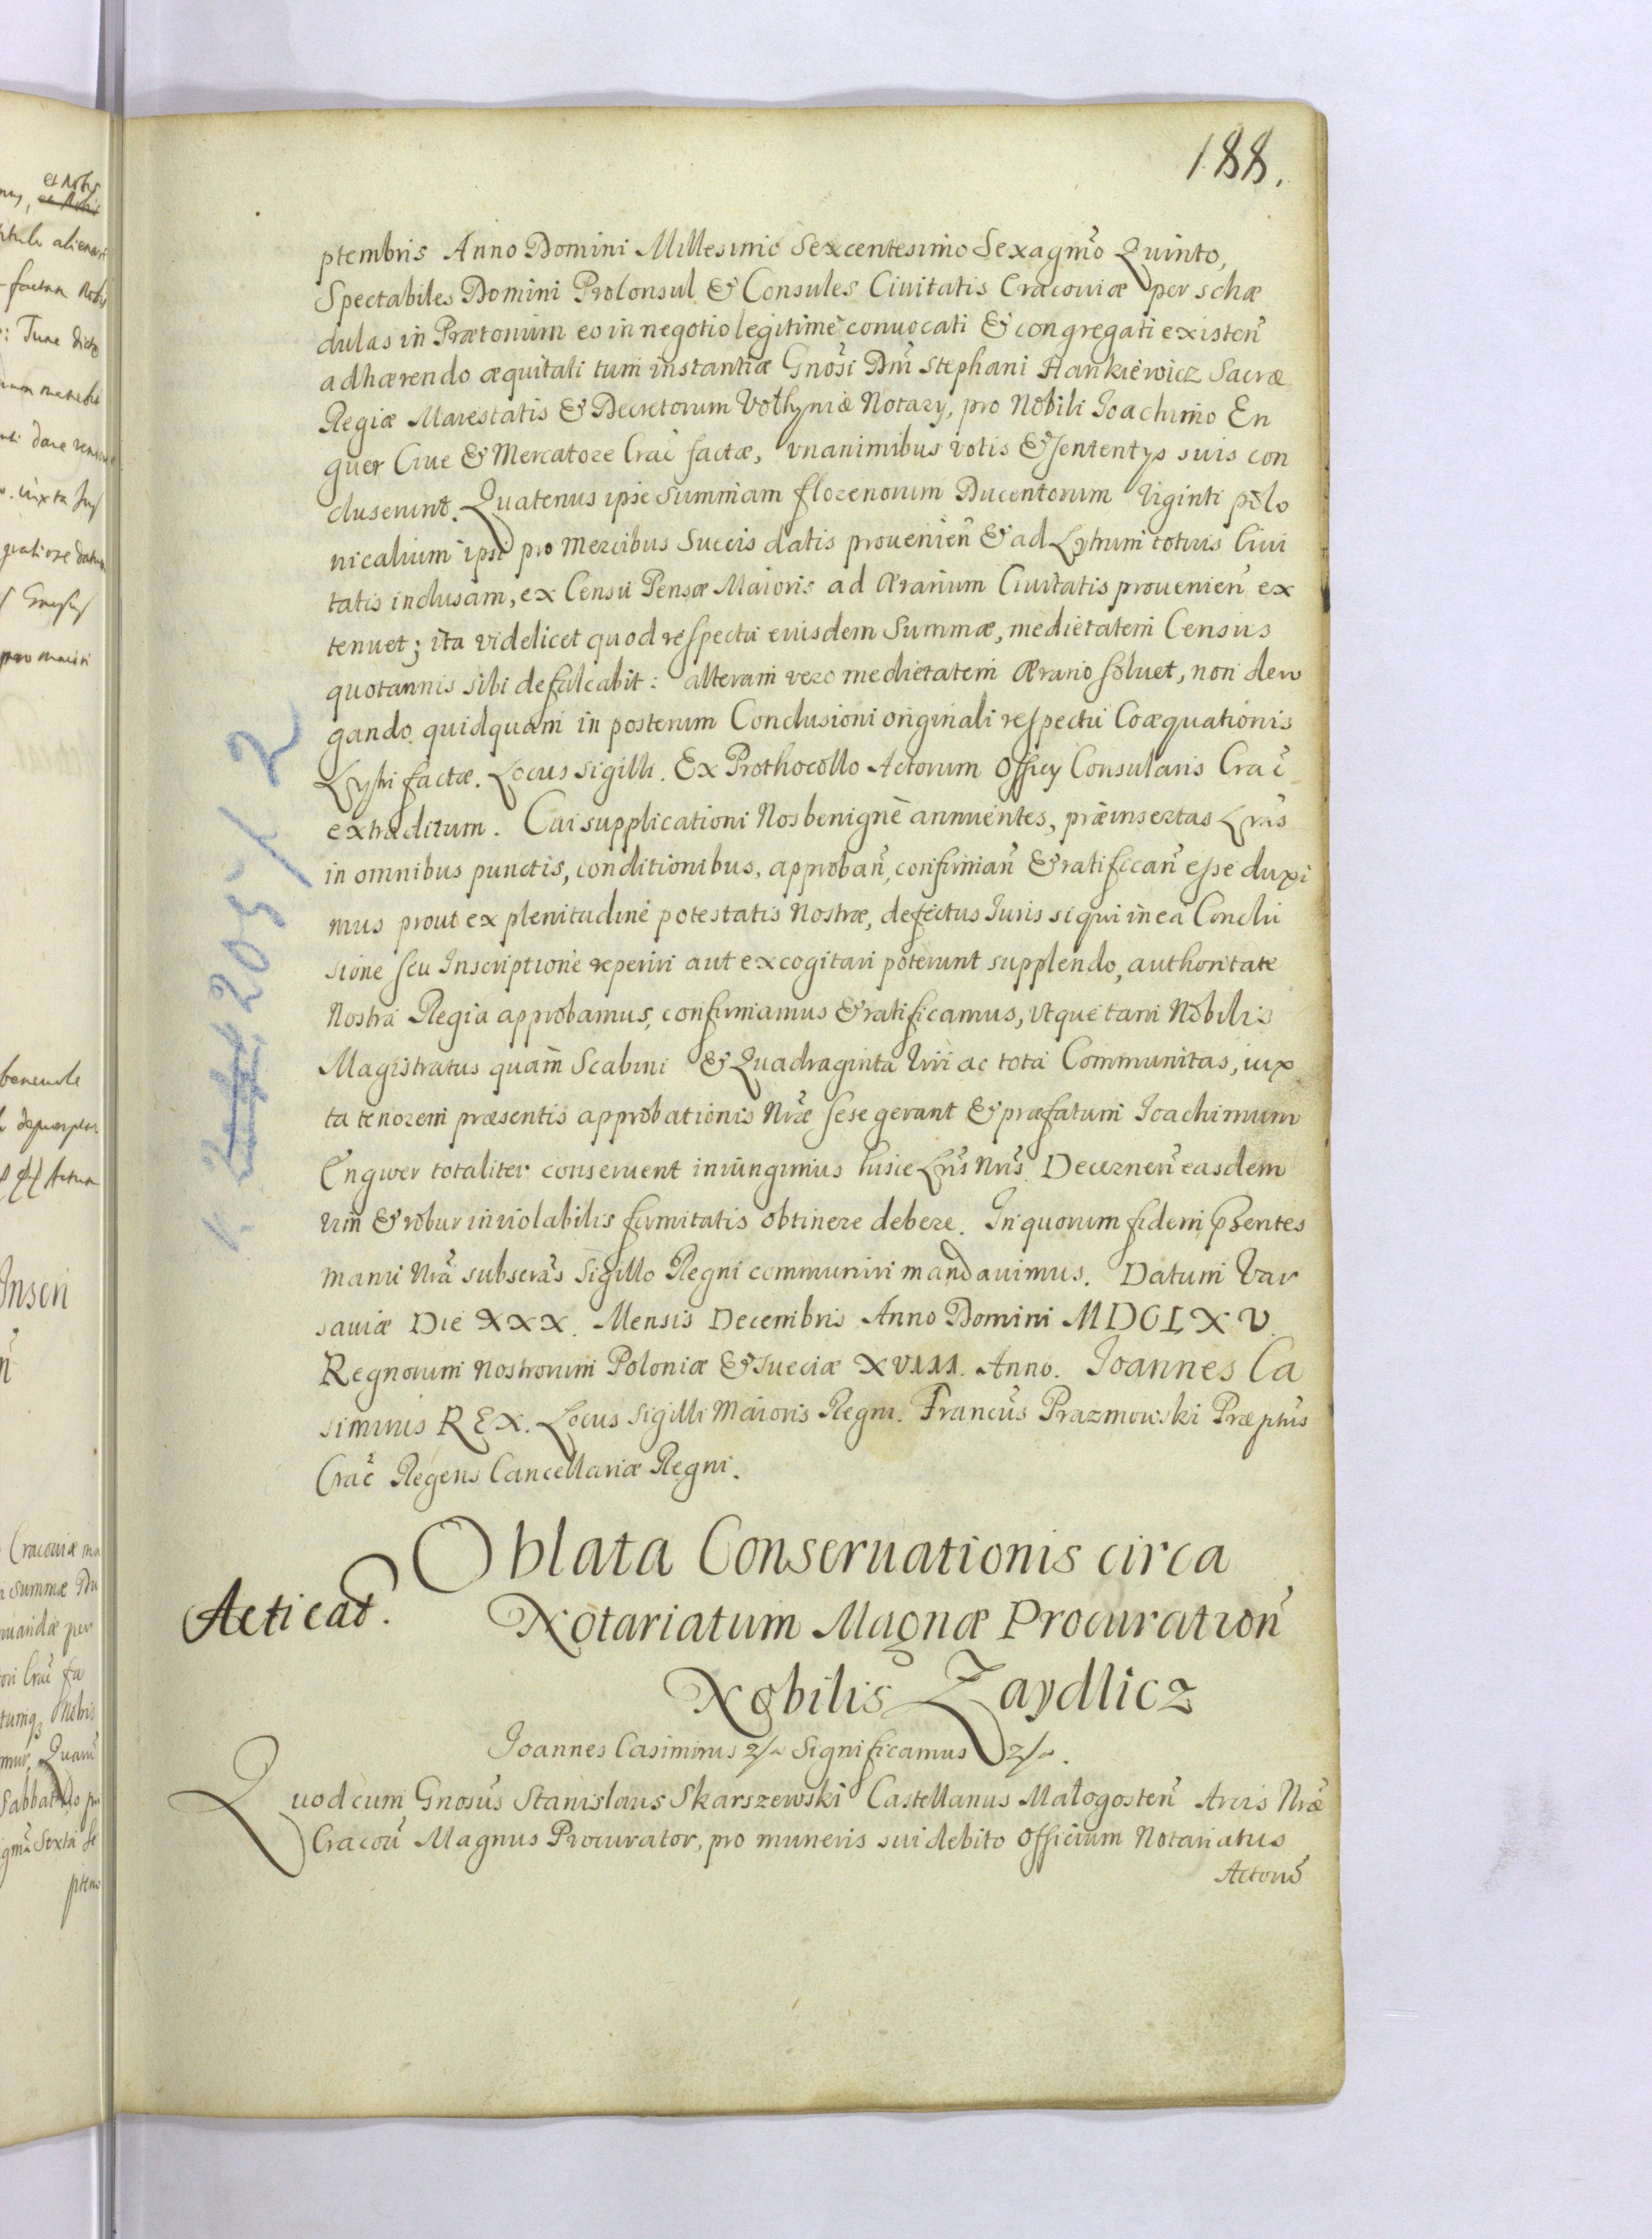 188.
ptembris Anno Domini Millesimo Sexcentesimo Sexagmo Quinto,
Spectabiles Domini Proconsul & Consules Ciuitatis Cracouiæ per schæ
dulas in Prætorium eo in negotio legitimè conuocati & congregati existen
adhærendo æquitati tum instantiæ Gnosi Dni Stephani Hankiewicz Sacræ
Regiæ Maiestatis & Decretorum Vołhyniæ Notary, pro Nobili Joachimo En
guer Ciue & Mercatore Crac factæ, vnanimibus votis & sententys suis con
cluserunt. Quatenus ipse Summam florenorum Ducentorum Viginti polo
nicalium ipsi pro Mercibus Suecis datis prouenien & ad Lytrum totius Ciui
tatis inclusam, ex Censu Pensæ Maioris ad Ærarium Ciuitatis prouenien ex
tenuet; ita videlicet quod respectu euisdem Summæ, medietatem Census
quotannis sibi defalcabit: alteram vero medietatem Ærario soluet, non dero
gando quidquam in posterum Conclusioni originali respectu Coæquationis
Lytri factæ. Locus Sigilli. Ex Prothocollo Actorum Officy Consularis Crac
extraditum. Cui supplicationi Nos benignè annuentes, præinsertas Lras
in omnibus punctis, conditionibus, approban, confirman & ratifican esse duxi
mus prout ex plenitudine potestatis Nostræ, defectus Juris si qui in ea Conclu
sione seu Inscriptione reperiri aut excogitari poterunt supplendo, authoritate
Nostra Regia approbamus, confirmamus & ratificamus, vtque tam Nobilis
Magistratus quam Scabini & Quadraginta Viri ac tota Communitas, iux
ta tenorem præsentis approbationis Nræ sese gerant & præfatum Joachimum
Engwer totaliter conseruent iniungimus hisce Lris Nris. Decernen easdem
vim & robur inviolabilis firmitatis obtinere debere. In quorum fidem psentes
manu Nra subscras Sigillo Regni communiri mandauimus. Datum Var
sauiæ Die XXX. Mensis Decembris Anno Domini MDCLXV.
Regnorum Nostrorum Poloniæ & Sueciæ XVIII. Anno. Joannes Ca
simirus REX. Locus Sigilli Maioris Regni. Francus Prazmowski Præptus
Crac Regens Cancellariæ Regni.
Oblata Conseruationis circa
Acticat. Notariatum Magnæ Procuration
Nobilis Zaydlicz
Joannes Casimirus 2/a Significamus 2/a.
Quod cum Gnosus Stanislaus Skarszewski Castellanus Małogosten Arcis Nræ
Cracou Magnus Procurator, pro muneris sui debito Officium Notariatus
Actoru
205/2